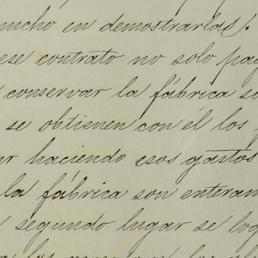 mucho en demostrarlas.
ese contrato no solo pag
conservar la fábrica se
se obtienen con él los
haciendo esos gastos
la fábrica son enteram
segundo lugar se log